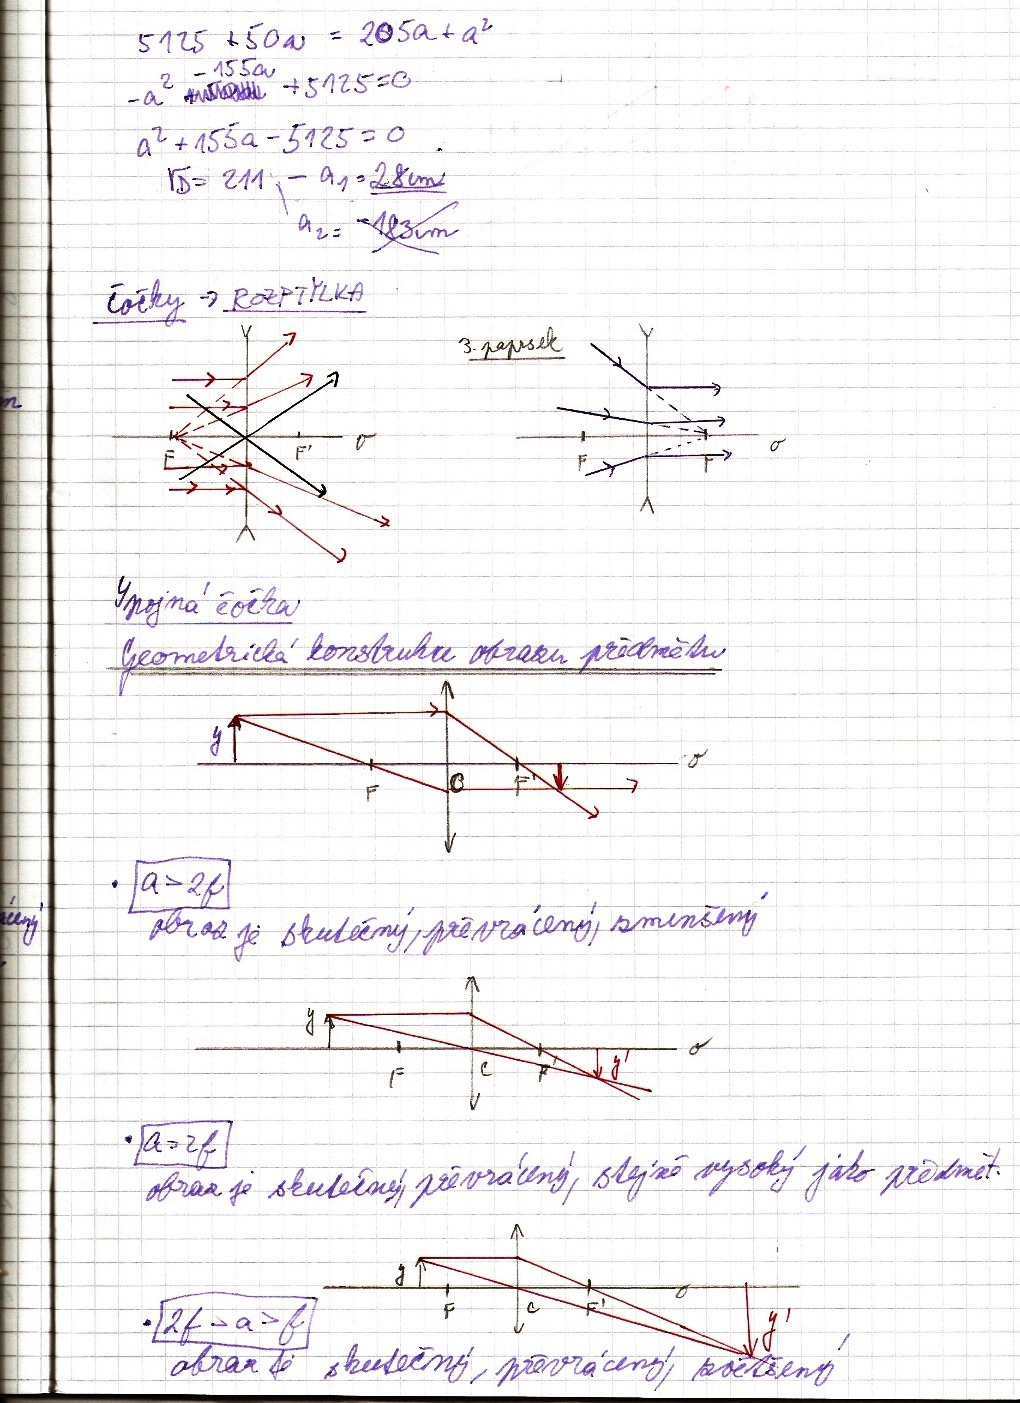 5125 + 50a = 205a + a²
-a² - 155a + 5125 = 0
a² + 155a - 5125 = 0
√D = 211 - a₁ = 28cm
a₂ = -183cm
čočky → ROZPTYLKA
3. paprsek
F F' o
F F o
Spojná čočka
Geometrická konstrukce obrazu předmětu
y F O F' o
a > 2f
obraz je skutečný, převrácený, zmenšený
y F C F' y' o
a = 2f
obraz je skutečný, převrácený, stejně vysoký jako předmět.
y F C F' o y'
2f > a > f
obraz je skutečný, převrácený, zvětšený